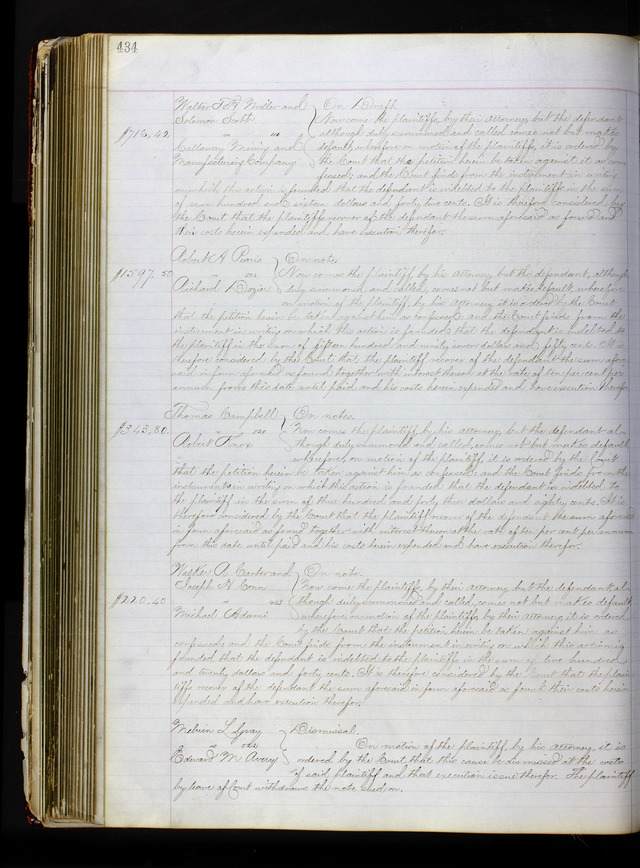 434
Walter F. R. Miller and } On 1 Draft
Solomon Scott } Now come the plaintiffs, by their Attorney, but the defendant
$716.42 vs } although duly summoned and called comes not but makes
Callaway Mining and } default, wherefore on motion of the plaintiffs, it is ordered by
Manufacturing Company } the Court that the petition herein be taken against it as con
fessed; and the Court finds from the instrument in writing
on which this action is founded that the defendant is indebted to the plaintiffs in the sum
of seven hundred and sixteen dollars and forty two cents. It is therefore considered by
the Court that the plaintiffs recover of the defendant the sum aforesaid as found and
their costs herein expended and have execution therefor.
Robert A. Paris } On note
$1597.50 vs } Now comes the plaintiff by his attorney but the defendant, although
Richard Dozier } duly summoned and called, comes not but makes default, wherefore
on motion of the plaintiff, by his Attorney it is ordered by the Court
that the petition herein be taken against him as confessed; and the Court finds from the
instrument in writing on which this action is founded, that the defendant is indebted to
the plaintiff in the sum of fifteen hundred and ninety seven dollars and fifty cents. It is
therefore considered by the Court that the plaintiff recover of the defendant the sum afore
said in form aforesaid as found together with interest thereon at the rate of ten per cent per
annum from this date until paid and his costs herein expended and have execution therefor
Thomas Campbell } On notes.
$343.80. vs } Now comes the plaintiff, by his attorney, but the defendant al
Robert Knox } though duly summoned and called, comes not but makes default
wherefore, on motion of the plaintiff, it is ordered by the Court
that the petition herein be taken against him as confessed; and the Court finds from the
instruments in writing on which this action is founded, that the defendant is indebted to
the plaintiff in the sum of three hundred and forty three dollars and eighty cents. It is
therefore considered by the Court that the plaintiff recover of the defendant the sum aforesaid
in form aforesaid as found together with interest thereon at the rate of ten per cent per annum
from this date until paid and his costs herein expended and have execution therefor.
Walker A. Carter and } On note.
Joseph H. Conn } Now come the plaintiffs, by their Attorney but the defendant al
$220.40 vs } though duly summoned and called, comes not but makes default
Michael Adams } wherefore on motion of the plaintiffs, by their Attorney, it is ordered
by the Court that the petition herein be taken against him as
confessed; and the Court finds from the instrument in writing on which this action is
founded, that the defendant is indebted to the plaintiffs in the sum of two hundred
and twenty dollars and forty cents. It is therefore considered by the Court that the plain
tiffs recover of the defendant the sum aforesaid in form aforesaid as found their costs herein
expended and have execution therefor.
Melvin L. Gray } Dismissal.
vs } On motion of the plaintiff, by his Attorney, it is
Edward M. Avery } ordered by the Court that this cause be dismissed at the costs
of said plaintiff and that execution issue therefor. The plaintiff
by leave of Court withdraws the note sued on.